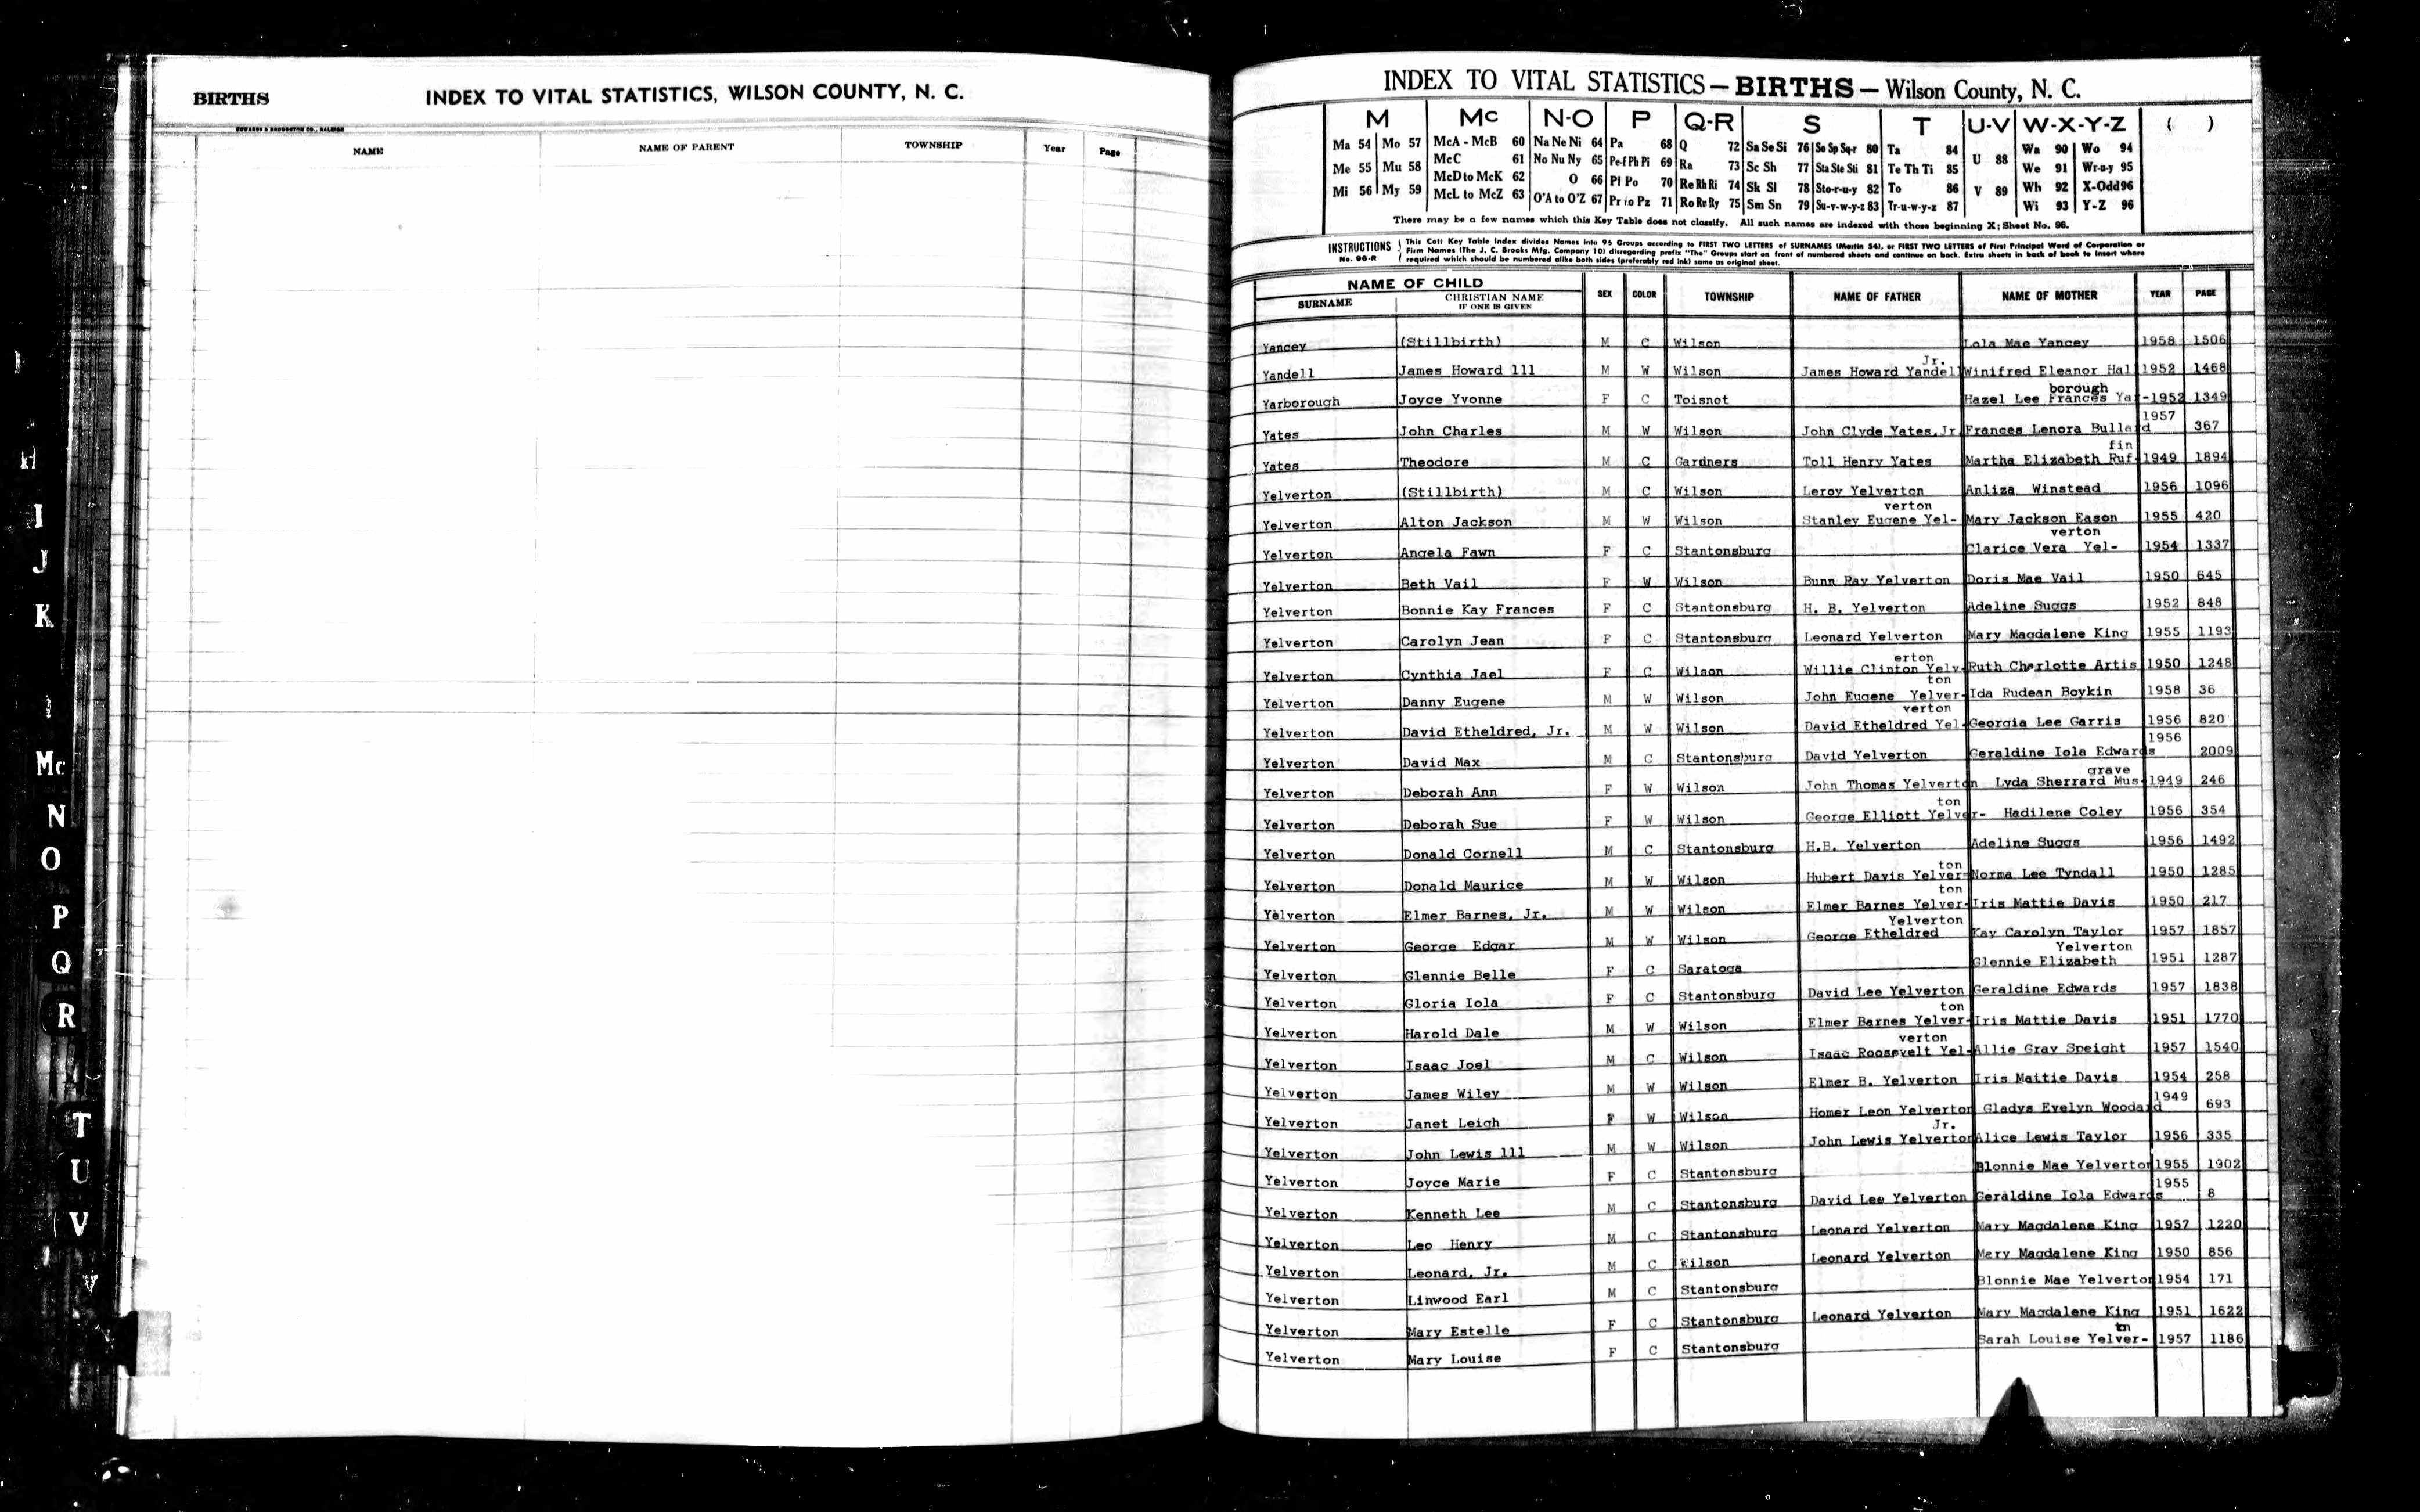 BIRTHS INDEX TO VITAL STATISTICS, WILSON COUNTY, N. C.
EDWARDS & BROUGHTON CO., RALEIGH
NAME NAME OF PARENT TOWNSHIP Year Page
H
I
J
K
Mc
N
O
P
Q
R
T
U
V
W
INDEX TO VITAL STATISTICS — BIRTHS — Wilson County, N. C.
M Mc N-O P Q-R S T U-V W-X-Y-Z ( )
Ma 54 Mo 57 McA - McB 60 Na Ne Ni 64 Pa 68 Q 72 Sa Se Si 76 So Sp Sq-r 80 Ta 84 U 88 Wa 90 Wo 94
Me 55 Mu 58 McC 61 No Nu Ny 65 Pe-f Ph Pi 69 Ra 73 Sc Sh 77 Sta Ste Sti 81 Te Th Ti 85 We 91 Wr-u-y 95
McD to McK 62 O 66 Pl Po 70 Re Rh Ri 74 Sk Sl 78 Sto-r-u-y 82 To 86 V 89 Wh 92 X-Odd 96
Mi 56 My 59 McL to McZ 63 O'A to O'Z 67 Pr to Pz 71 Ro Ru Ry 75 Sm Sn 79 Su-v-w-y-z 83 Tr-u-w-y-z 87 Wi 93 Y-Z 96
There may be a few names which this Key Table does not classify. All such names are indexed with those beginning X; Sheet No. 96.
INSTRUCTIONS No. 96-R
This Cott Key Table Index divides Names into 96 Groups according to FIRST TWO LETTERS of SURNAMES (Martin 54), or FIRST TWO LETTERS of First Principal Word of Corporation or
Firm Names (The J. C. Brooks Mfg. Company 10) disregarding prefix "The" Groups start on front of numbered sheets and continue on back. Extra sheets in back of book to insert where
required which should be numbered alike both sides (preferably red ink) same as original sheet.
NAME OF CHILD
SURNAME CHRISTIAN NAME IF ONE IS GIVEN SEX COLOR TOWNSHIP NAME OF FATHER NAME OF MOTHER YEAR PAGE
Yancey (Stillbirth) M C Wilson Lola Mae Yancey 1958 1506
Jr.
Yandell James Howard 111 M W Wilson James Howard Yandel Winifred Eleanor Hal 1952 1468
borough
Yarborough Joyce Yvonne F C Toisnot Hazel Lee Frances Yar-1952 1349
Yates John Charles M W Wilson John Clyde Yates,Jr. Frances Lenora Bullard 1957 367
fin
Yates Theodore M C Gardners Toll Henry Yates Martha Elizabeth Ruf- 1949 1894
Yelverton (Stillbirth) M C Wilson Leroy Yelverton Anliza Winstead 1956 1096
verton
Yelverton Alton Jackson M W Wilson Stanley Eugene Yel- Mary Jackson Eason 1955 420
verton
Yelverton Angela Fawn F C Stantonsburg Clarice Vera Yel- 1954 1337
Yelverton Beth Vail F W Wilson Bunn Ray Yelverton Doris Mae Vail 1950 645
Yelverton Bonnie Kay Frances F C Stantonsburg H. B. Yelverton Adeline Suggs 1952 848
Yelverton Carolyn Jean F C Stantonsburg Leonard Yelverton Mary Magdalene King 1955 1193
erton
Yelverton Cynthia Jael F C Wilson Willie Clinton Yelv- Ruth Charlotte Artis 1950 1248
ton
Yelverton Danny Eugene M W Wilson John Eugene Yelver- Ida Rudean Boykin 1958 36
verton
Yelverton David Etheldred, Jr. M W Wilson David Etheldred Yel- Georgia Lee Garris 1956 820
Yelverton David Max M C Stantonsburg David Yelverton Geraldine Iola Edwards 1956 2009
grave
Yelverton Deborah Ann F W Wilson John Thomas Yelverton Lyda Sherrard Mus- 1949 246
ton
Yelverton Deborah Sue F W Wilson George Elliott Yelver- Hadilene Coley 1956 354
Yelverton Donald Cornell M C Stantonsburg H.B. Yelverton Adeline Suggs 1956 1492
ton
Yelverton Donald Maurice M W Wilson Hubert Davis Yelver- Norma Lee Tyndall 1950 1285
ton
Yelverton Elmer Barnes, Jr. M W Wilson Elmer Barnes Yelver- Iris Mattie Davis 1950 217
Yelverton
Yelverton George Edgar M W Wilson George Etheldred Kay Carolyn Taylor 1957 1857
Yelverton
Yelverton Glennie Belle F C Saratoga Glennie Elizabeth 1951 1287
Yelverton Gloria Iola F C Stantonsburg David Lee Yelverton Geraldine Edwards 1957 1838
ton
Yelverton Harold Dale M W Wilson Elmer Barnes Yelver- Iris Mattie Davis 1951 1770
verton
Yelverton Isaac Joel M C Wilson Isaac Roosevelt Yel- Allie Gray Speight 1957 1540
Yelverton James Wiley M W Wilson Elmer B. Yelverton Iris Mattie Davis 1954 258
Yelverton Janet Leigh F W Wilson Homer Leon Yelverton Gladys Evelyn Woodard 1949 693
Jr.
Yelverton John Lewis 111 M W Wilson John Lewis Yelverton Alice Lewis Taylor 1956 335
Yelverton Joyce Marie F C Stantonsburg Blonnie Mae Yelverton 1955 1902
Yelverton Kenneth Lee M C Stantonsburg David Lee Yelverton Geraldine Iola Edwards 1955 8
Yelverton Leo Henry M C Stantonsburg Leonard Yelverton Mary Magdalene King 1957 1220
Yelverton Leonard, Jr. M C Wilson Leonard Yelverton Mary Magdalene King 1950 856
Yelverton Linwood Earl M C Stantonsburg Blonnie Mae Yelverton 1954 171
Yelverton Mary Estelle F C Stantonsburg Leonard Yelverton Mary Magdalene King 1951 1622
tn
Yelverton Mary Louise F C Stantonsburg Sarah Louise Yelver- 1957 1186